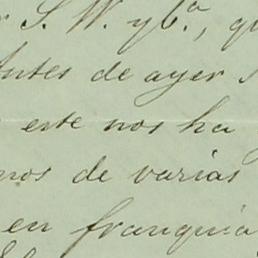 S. W. y Cª.,
Antes de ayer
este nos ha
nos de varias
en franquia